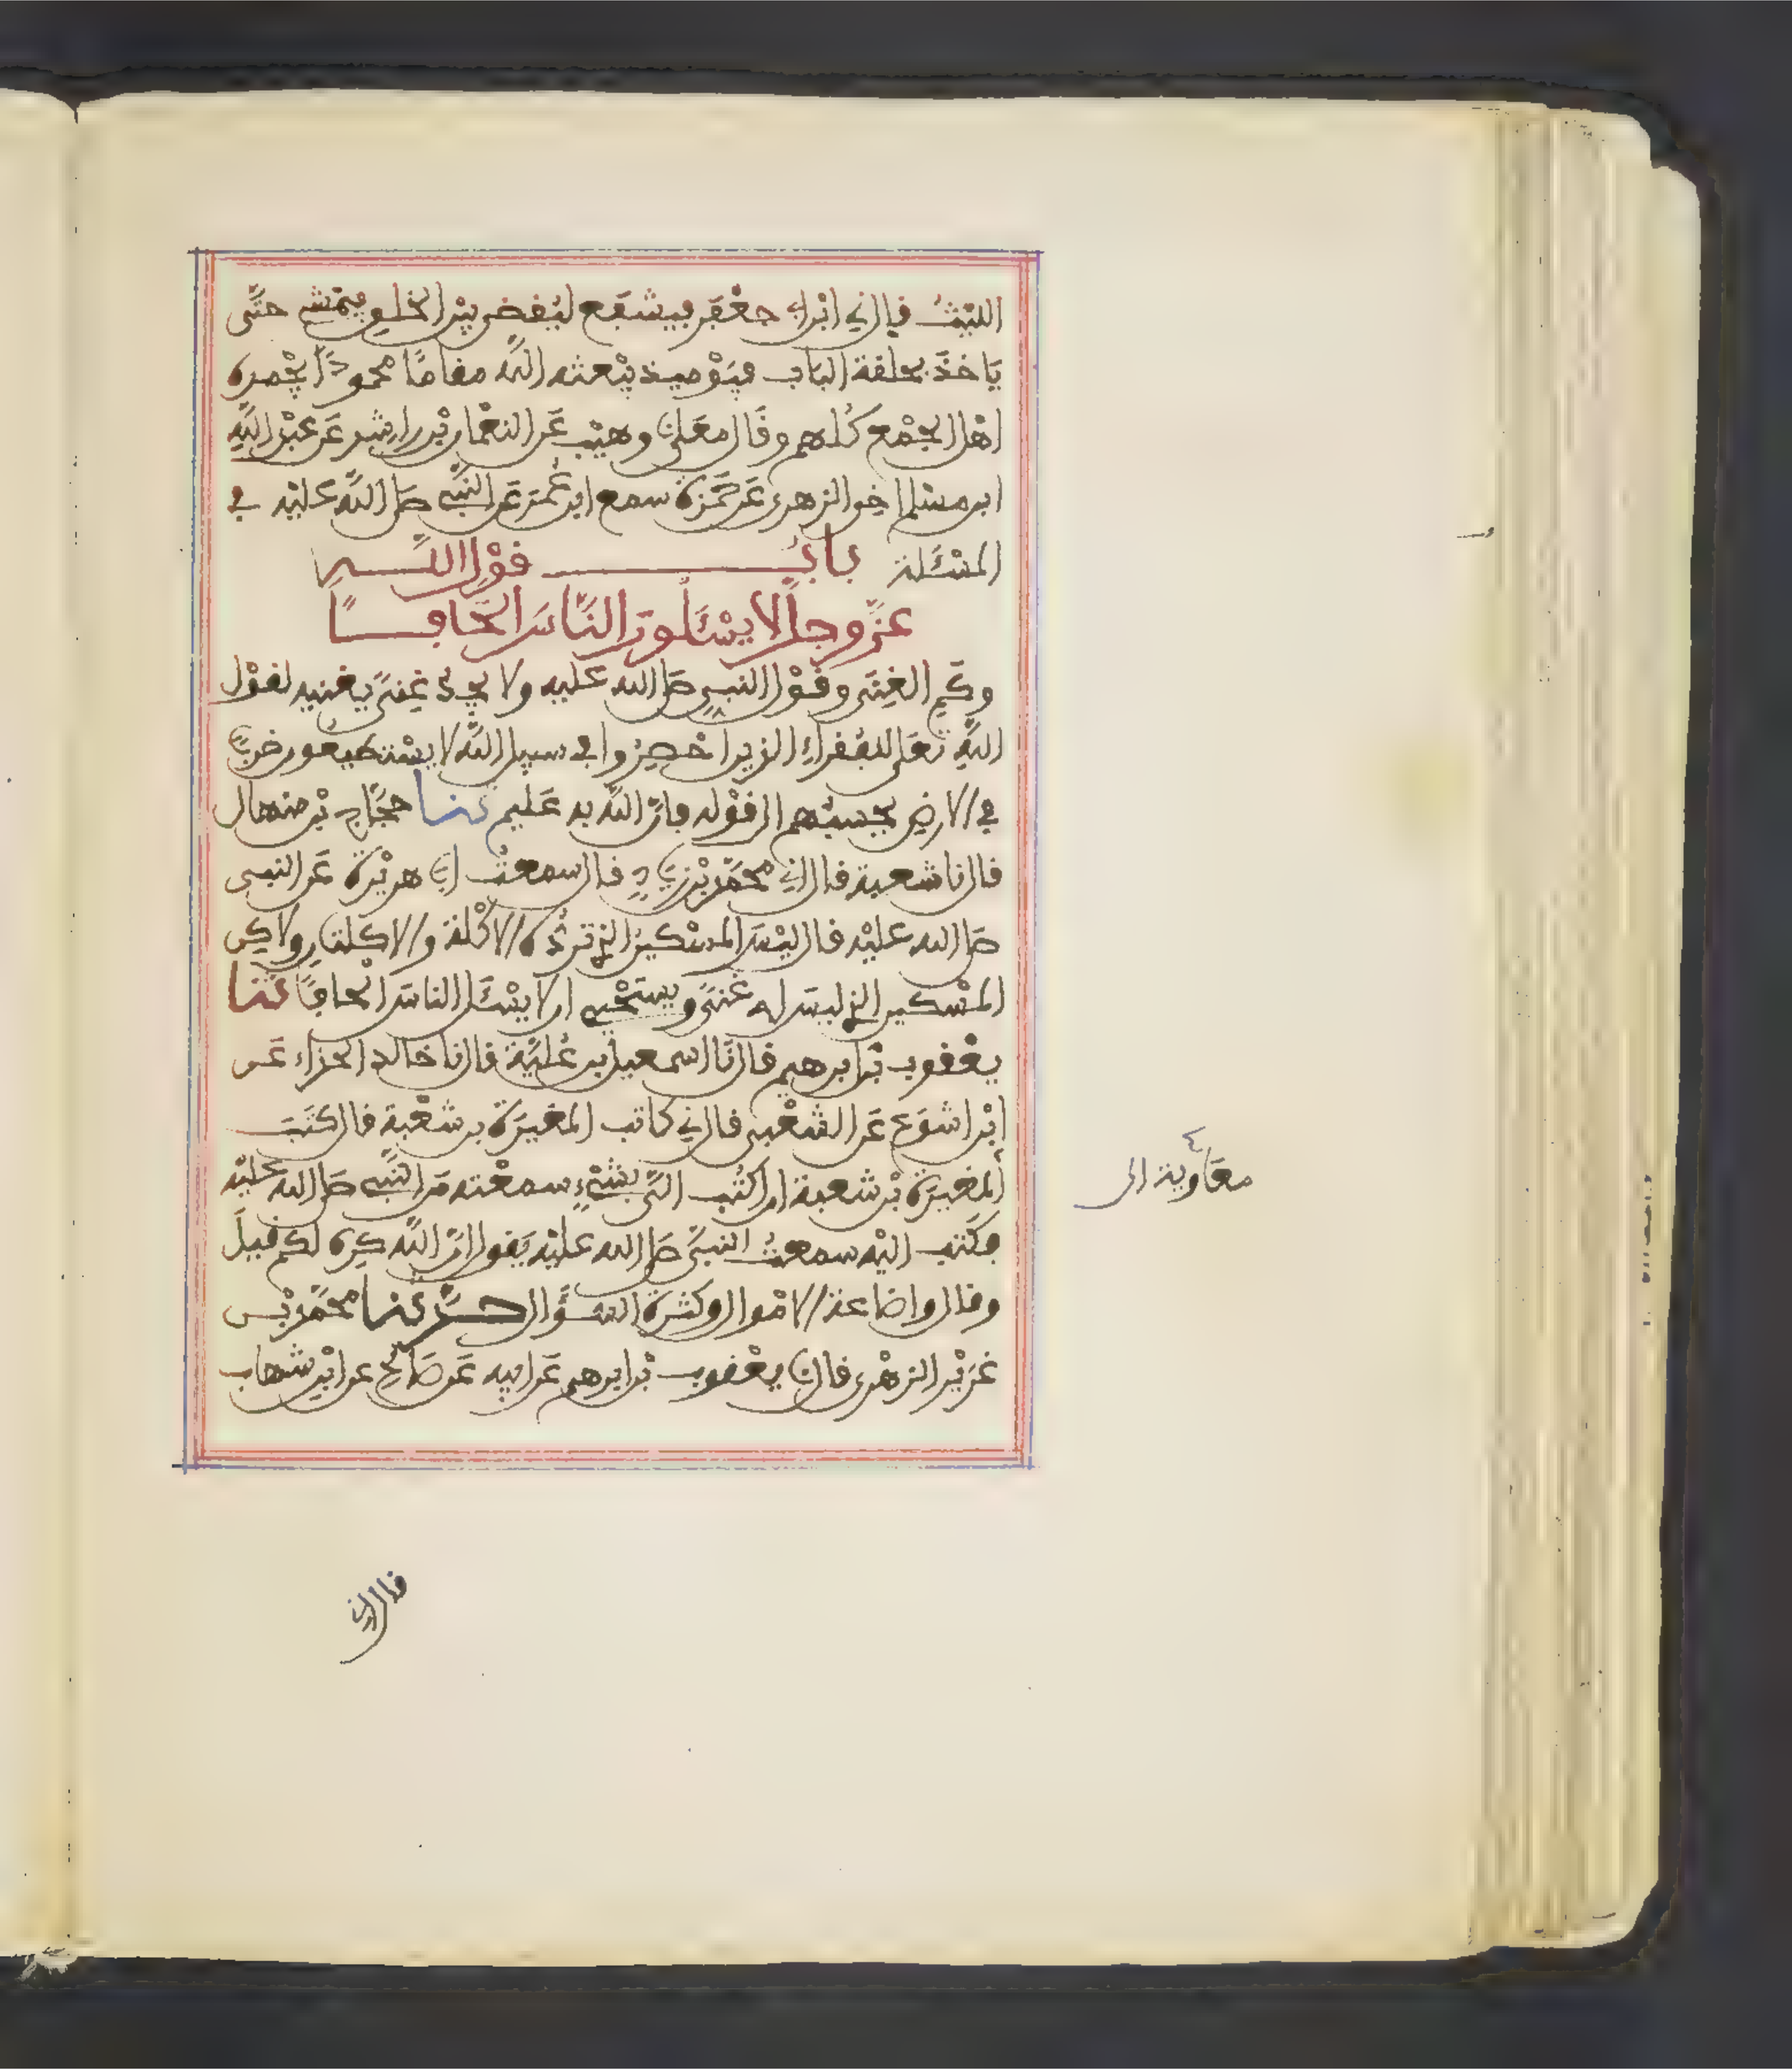 الليث قال ني ابن ابي جعفر فيشفع ليقضى بين الخلق فيمشي حتّى
يَاخذَ بحلقة الباب فيَوْميذ يبْعثه اللّه مقامًا محمودًا يحْمده
اهْل الجمْع كُلهم وقَال معَلى نا وهيْب عَن النعْمان بْن راشد عَن عبْد اللَّهِ
ابن مسلم اخى الزهرى عَن حَمْزة سمع ابن عُمَر عَن النّبي صَلى اللّه عليْه في
المسْئَلة بابُ قوْل اللّهِ
عَزّ وجلّ لا يسْئَلُونَ النَّاسَ الحَافًا
وكَمِ الغِنَى وقوْل النبيِ صَلى الله عليه ولا يجد غِنًى يغنيه لقوْل
اللّهِ تعَلى للفُقراءِ الذين احْصِرُوا في سبيل اللّه لا يسْتطيعُون ضربًا
في الارضِ يحسبُهم الى قوْله فانّ اللّه به عَليم ثنا حجّاج بْن منهال
قال نا شعبة قال ني محمّد بْن زياد قال سمعتُ ابا هريْرة عَن النبى
صَلى الله عليْه قال ليْسَ المسْكينُ الذى تردُّه الاكْلَة والاكلتَانِ ولاكِن
المسْكين الذى ليسَ له غنًى ويستحْيي او لا يسْئَل الناسَ الحافًا ثنا
يعْقوب بْن ابرهيم قال نَا اسمعيل بن عُليّة قال نا خالد الحذاء عَن
ابْن اشوَع عَن الشعْبى قال ني كاتب المغيرَة بن شعْبة قال كتَبَ
معَاوية الى
المغيرَة بْن شعبة ان اكتُب اليّ بشيْءٍ سمعْته مِن النّبي صَلى الله عليْه
فكَتب اليْه سمعتُ النبيَّ صَلى الله عليْه يَقول انّ اللّه كره لكم قيلَ
وقال واضاعة الامْوال وكثرة السّؤَال حدّثنا محمّد بْن
غرَيْر الزهْرى قال نا يعْقوب بْن ابرهيم عَن ابيه عَن صَالحٍ عن ابْن شهاب
قال اني